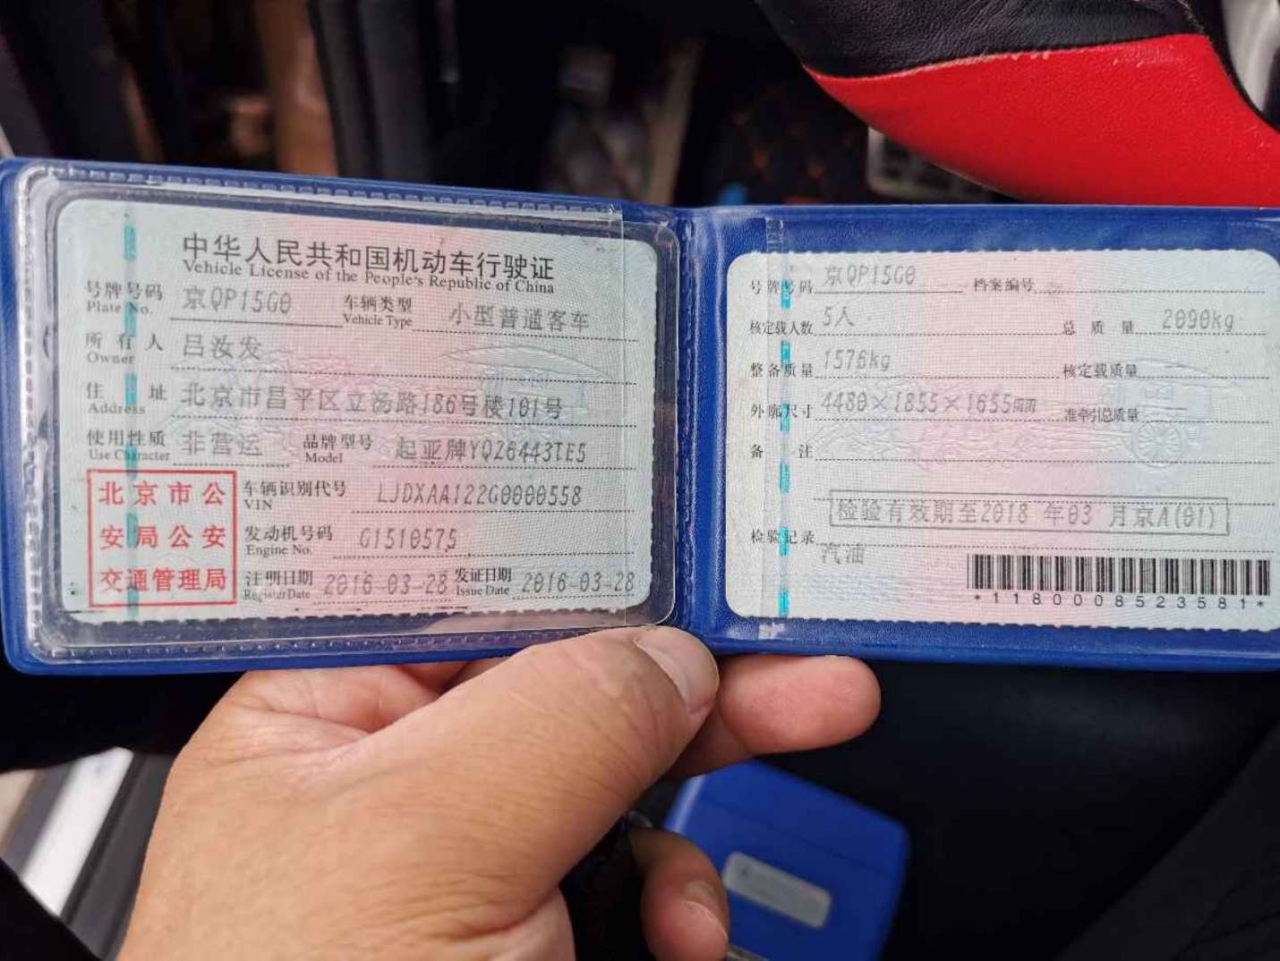 中华人民共和国机动车行驶证
Vehicle License of the People's Republic of China
号牌号码 京QP15G0 车辆类型 小型普通客车
Plate No. Vehicle Type
所有人 吕汝发
Owner
住址 北京市昌平区立汤路186号楼101号
Address
使用性质 非营运 品牌型号 起亚牌YQZ6443TE5
Use Character Model
北京市公安局公安交通管理局
车辆识别代号 LJDXAA122G0000558
VIN
发动机号码 G1510575
Engine No.
注册日期 2016-03-28 发证日期 2016-03-28
Register Date Issue Date
号牌号码 京QP15G0 档案编号
核定载人数 5人 总质量 2090kg
整备质量 1576kg 核定载质量
外廓尺寸 4480×1855×1655mm 准牵引总质量
备注
检验有效期至2018 年03 月京A(01)
检验记录
汽油
*1180008523581*